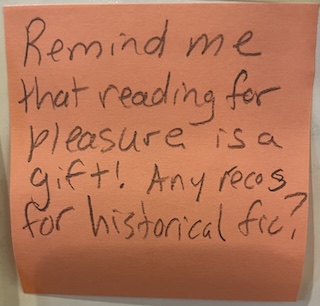 Remind me
that reading for
pleasure is a
gift! Any recos
for historical fic?